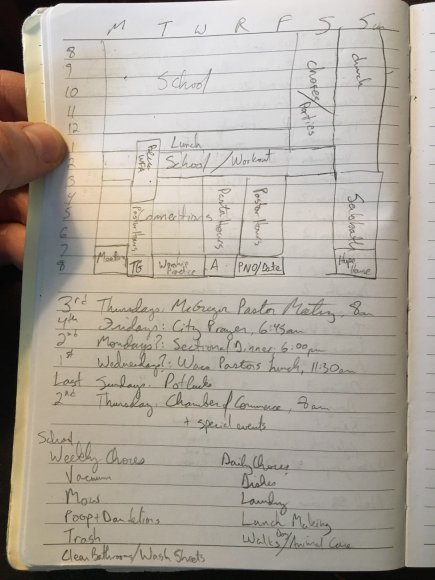 M T W R F S Sun
8
9
10
11
12
1
2
3
4
5
6
7
8
School
Chores/
Parties
church
Lunch
School / Workout
Police
WFA
Connections
Pastor Hours
Pastor Hours
Pastor Hours
Sabbath
Meeting
TG
Worship
Practice
A
PNO/Date
Hope
House
3rd Thursdays: McGregor Pastor Meeting, 8am
4th Fridays: City Prayer, 6:45am
2nd Mondays?: Sectional Dinner 6:00pm
1st Wednesday?: Waco Pastors Lunch, 11:30am
Last Sundays: Potlucks
2nd Thursday: Chamber of Commerce, 8am
+ special events
School
Weekly Chores
Vacuum
Mow
Poop + Dandelions
Trash
Clean Bathrooms/Wash Sheets
Daily Chores
Dishes
Laundry
Lunch Making
Walks Dog/Animal Care